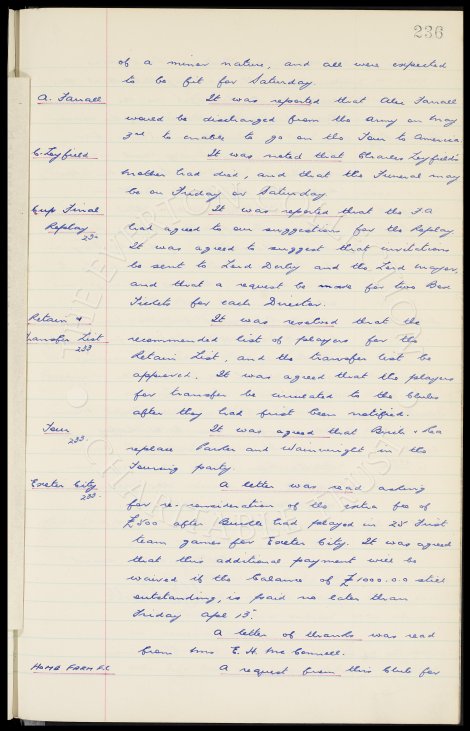 236
of a minor nature, and all were expected
to be fit for Saturday.
A. Farrall
It was reported that Alec Farrall
would be discharged from the Army on May
3rd to enable to go on the Tour to America
C. Leyfield
It was noted that Charles Leyfield's
mother had died, and that the Funeral may
be on Friday or Saturday
Cup Final
It was reported that the F.A
Replay
had agreed to our suggestions for the Replay
It was agreed to suggest that invitations
be sent to Lord Derby and the Lord Mayor,
and that a request be made for two Box
Tickets for each Director.
Retain &
It was resolved that the
Transfer List
recommended list of players for the
233
Retain List, and the transfer list be
approved. It was agreed that the players
for transfer be circulated to the Clubs
after they had first been notified.
Tour
It was agreed that Birch & Rea
233
replace Parker and Wainwright in the
Touring party.
Exeter City
A letter was read asking
233
for re-consideration of the extra fee of
£500 after had played in 25 First
team games for Exeter City. It was agreed
that this additional payment will be
waived if the balance of £1000.0.0 still
outstanding, is paid no later than
Friday Apl
A letter of thanks was read
from Mrs E. H. McConnell.
HOME FARM F.C.
A request from this Club for